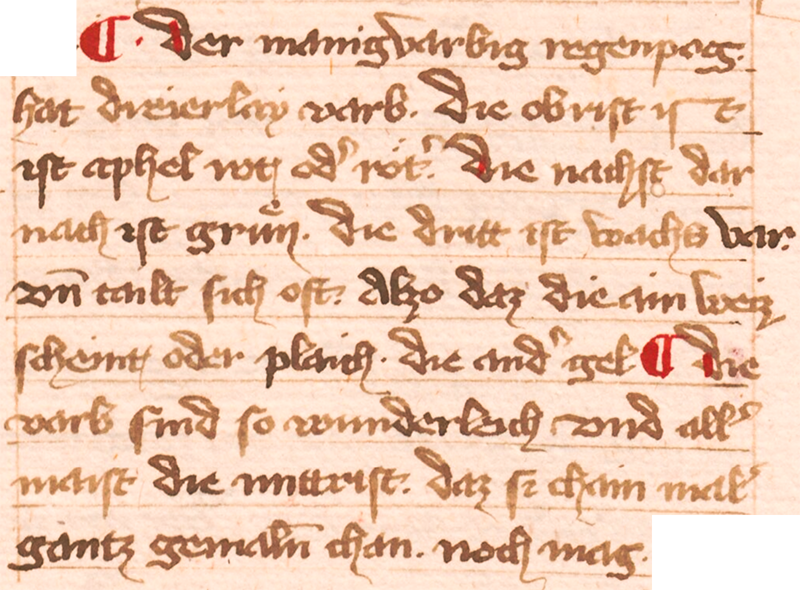 ¶ Der manigvarbig regenpog.
hat dreierlay varb. Die obrist ist
ist aphel rot od' röt'. Die nachst dar
nach ist grün. die dritt ist wachs var.
vn̄ tailt sich oft. Alzo daz die ain weiz
scheint oder plaich. die and' gel ¶ Die
varb sind so wunderleich vnd all'
maist die mittrist. daz si chain mal'
gantz gemaln̄ chan. noch mag.